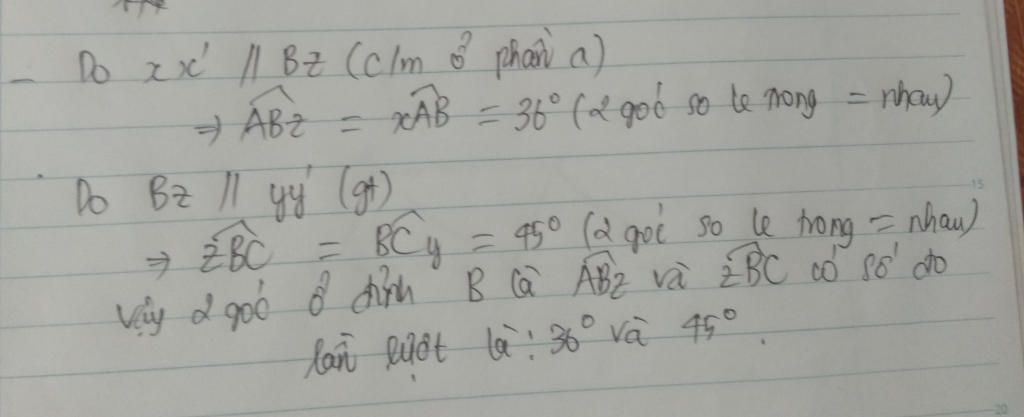 - Do xx' // Bz (c/m ở phần a)
⇒ \widehat{ABz} = \widehat{xAB} = 36° (2 góc so le trong = nhau)
· Do Bz // yy' (gt)
⇒ \widehat{zBC} = \widehat{BCy} = 45° (2 góc so le trong = nhau)
Vậy 2 góc ở đỉnh B là \widehat{ABz} và \widehat{zBC} có số đo
lần lượt là: 36° và 45°.
15
20